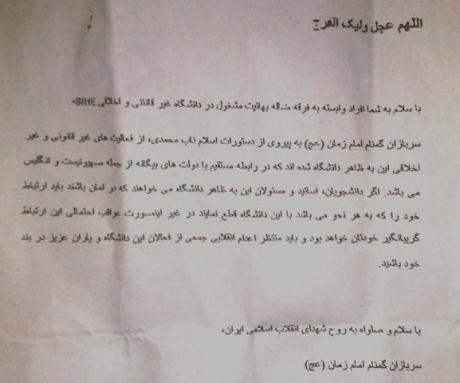 اللهم عجل ولیک الفرج
با سلام به شما افراد وابسته به فرقه ضاله بهائیت مشغول در دانشگاه غیر قانونی و اخلاقی BIHE،
سربازان گمنام امام زمان (عج) به پیروی از دستورات اسلام ناب محمدی، از فعالیت های غیر قانونی و غیر
اخلاقی این به ظاهر دانشگاه شده اند که در رابطه مستقیم با دولت های بیگانه از جمله صهیونیست و انگلیس
می باشد. اگر دانشجویان، اساتید و مسئولان این به ظاهر دانشگاه می خواهند که در امان باشند باید ارتباط
خود را که به هر نحو می باشد با این دانشگاه قطع نمایند در غیر اینصورت عواقب احتمالی این ارتباط
گریبانگیر خودتان خواهد بود و باید منتظر اعدام انقلابی جمعی از فعالان این دانشگاه و یاران عزیز در بند
خود باشید.
با سلام و صلواه به روح شهدای انقلاب اسلامی ایران،
سربازان گمنام امام زمان (عج)